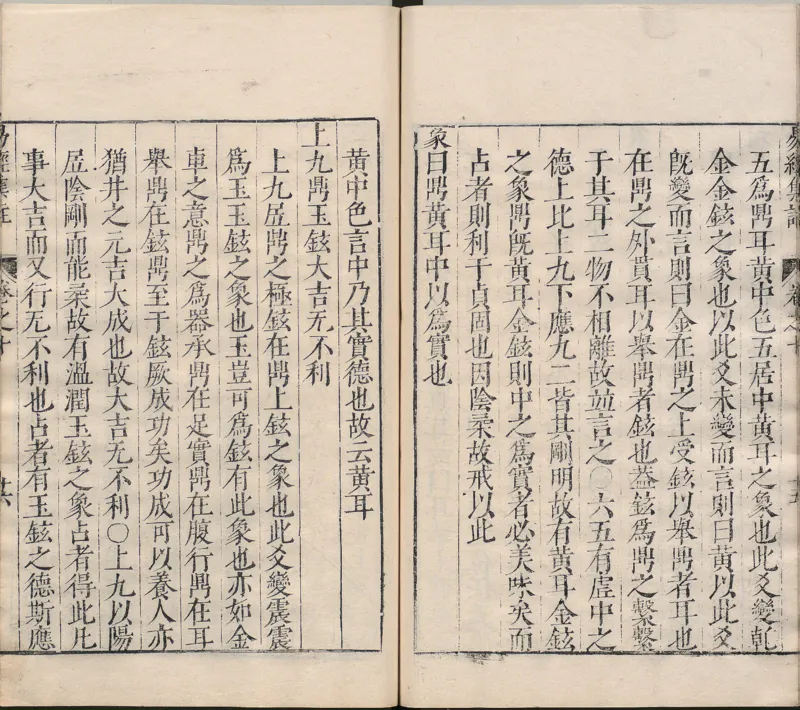 五爲鼎耳黃中色五居中黃耳之象也此爻變乾
金金鉉之象也以此爻未變而言則曰黃以此爻
旣變而言則曰金在鼎之上受鉉以舉鼎者耳也
在鼎之外貫耳以舉鼎者鉉也蓋鉉爲鼎之繫繫
于其耳二物不相離故並言之〇六五有虛中之
德上比上九下應九二皆其剛明故有黃耳金鉉
之象鼎旣黃耳金鉉則中之爲實者必美味矣而
占者則利于貞固也因陰柔故戒以此
象曰鼎黃耳中以爲實也
黃中色言中乃其實德也故云黃耳
上九鼎玉鉉大吉无不利
上九居鼎之極鉉在鼎上鉉之象也此爻變震震
爲玉玉鉉之象也玉豈可爲鉉有此象也亦如金
車之意鼎之爲器承鼎在足實鼎在腹行鼎在耳
舉鼎在鉉鼎至于鉉厥成功矣功成可以養人亦
猶井之元吉大成也故大吉无不利〇上九以陽
居陰剛而能柔故有溫潤玉鉉之象占者得此凡
事大吉而又行无不利也占者有玉鉉之德斯應
易經集註 卷之十 廿六